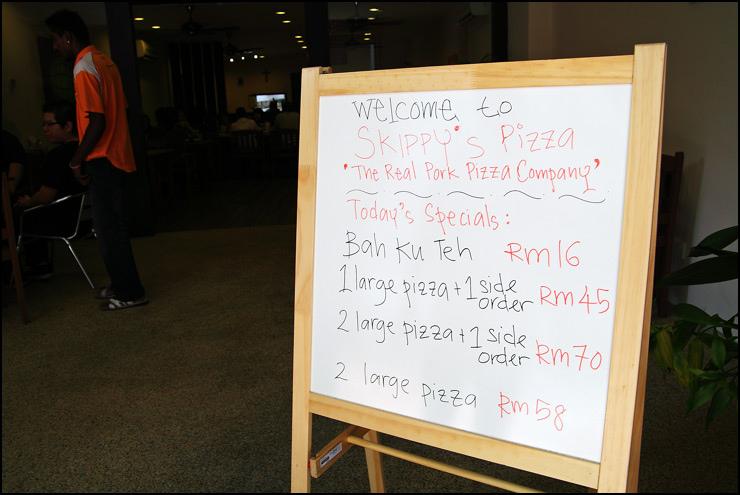 Welcome to
SKIPPY's Pizza
'The Real Pork Pizza Company'
Today's Specials:
Bah Ku Teh Rm16
1 large pizza + 1 side order Rm45
2 large pizza + 1 side order Rm70
2 large pizza Rm58